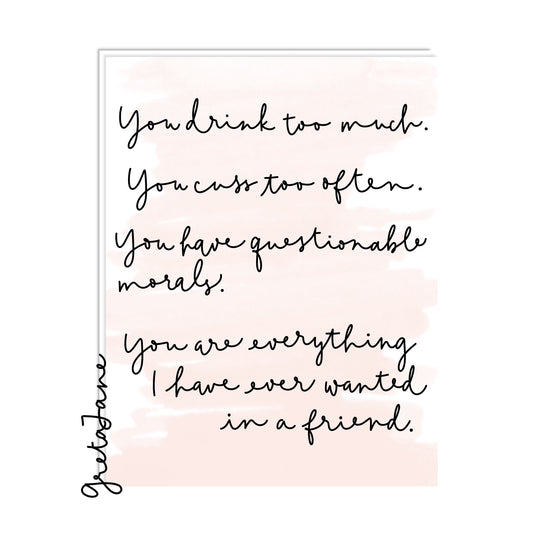 You drink too much.
You cuss too often.
You have questionable
morals.
You are everything
I have ever wanted
in a friend.
GretaJane